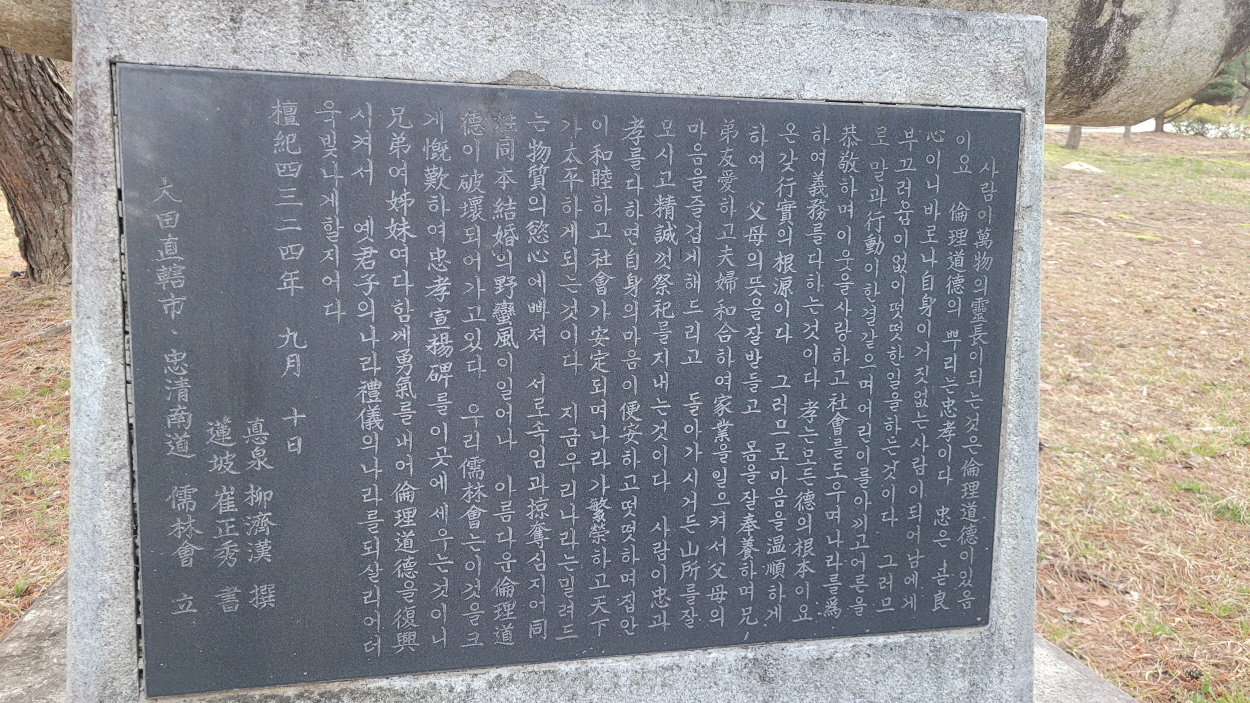 사람이萬物의靈長이되는것은倫理道德이있음
이요 倫理道德의 뿌리는忠孝이다 忠은 곧良
心이니바로나自身이거짓없는사람이되어남에게
부끄러움이없이떳떳한일을하는것이다 그러므
로 말과行動이한결같으며어린이를아끼고어른을
恭敬하며이웃을사랑하고社會를도우며나라를爲
하여義務를다하는것이다 孝는모든德의根本이요
온갖行實의根源이다 그러므로마음을溫順하게
하여 父母의뜻을잘받들고 몸을잘奉養하며兄
弟友愛하고夫婦和合하여家業을일으켜서父母의
마음을즐겁게해드리고 돌아가시거든山所를잘
모시고精誠껏祭祀를지내는것이다 사람이忠과
孝를다하면自身의마음이便安하고떳떳하며집안
이和睦하고社會가安定되며나라가繁榮하고天下
가太平하게되는것이다 지금우리나라는밀려드
는物質의慾心에빠져 서로속임과掠奪심지어同
姓同本結婚의野蠻風이일어나 아름다운倫理道
德이破壞되어가고있다 우리儒林會는이것을크
게慨歎하여忠孝宣揚碑를이곳에세우는것이니
兄弟여姉妹여다함께勇氣를내어倫理道德을復興
시켜서 옛君子의나라禮儀의나라를되살리어더
욱빛나게할지어다
檀紀四三二四年 九月 十日
惪泉 柳濟漢 撰
蓮坡 崔正秀 書
大田直轄市、忠淸南道 儒林會 立